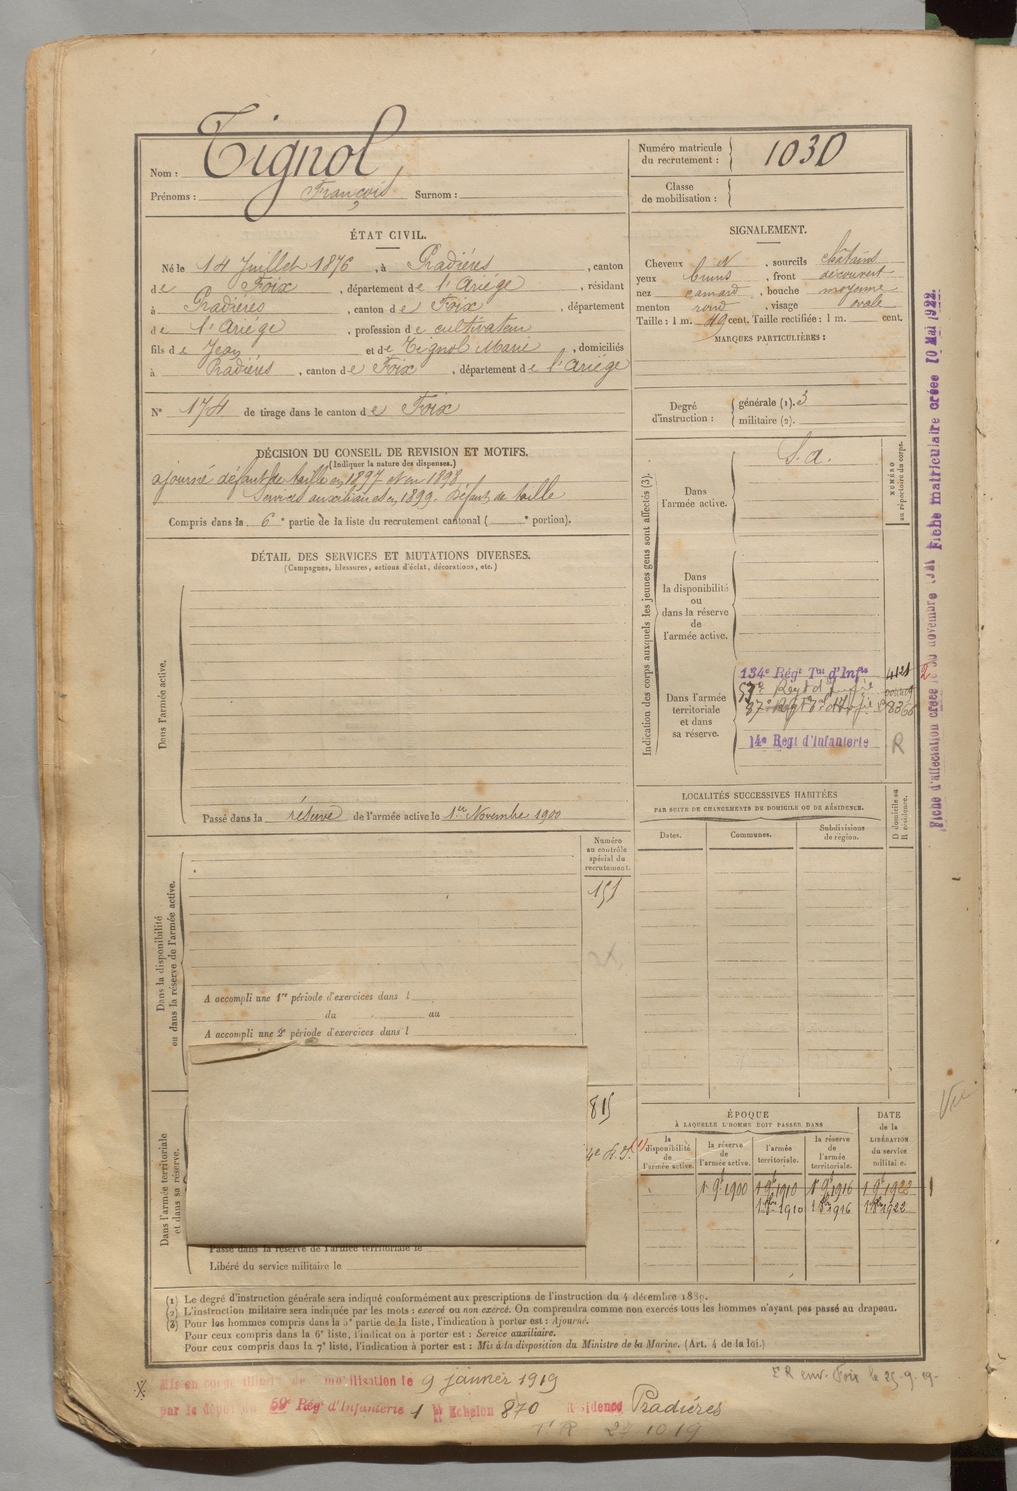 Nom : Tignol
Prénoms : François Surnom :
Numéro matricule du recrutement : 1030
Classe de mobilisation :
ÉTAT CIVIL.
Né le 14 Juillet 1876, à Pradières, canton
de Foix, département de l'Ariège, résidant
à Pradières, canton de Foix, département
de l'Ariège, profession de cultivateur
fils de Jean et de Tignol Marie, domiciliés
à Pradières, canton de Foix, département de l'Ariège
N° 174 de tirage dans le canton de Foix
SIGNALEMENT.
Cheveux N, sourcils châtains
yeux bruns, front découvert
nez camard, bouche moyenne
menton rond, visage ovale
Taille : 1 m. 49 cent. Taille rectifiée : 1 m. cent.
MARQUES PARTICULIÈRES :
Degré d'instruction : générale (1). 3
militaire (2).
DÉCISION DU CONSEIL DE REVISION ET MOTIFS.
(Indiquer la nature des dispenses.)
ajourné défaut de taille en 1897 et en 1898
Services auxiliaires en 1899. Défaut de taille
Compris dans la 6e partie de la liste du recrutement cantonal ( e portion).
DÉTAIL DES SERVICES ET MUTATIONS DIVERSES.
(Campagnes, blessures, actions d'éclat, décorations, etc.)
Dans l'armée active.
Passé dans la réserve de l'armée active le 1er Novembre 1900
Indication des corps auxquels les jeunes gens sont affectés (3).
NUMÉRO au répertoire du corps.
Dans l'armée active.
S. a.
Dans la disponibilité ou dans la réserve de l'armée active.
Dans l'armée territoriale et dans sa réserve.
134e Régt Tal d'Infie
14e Regt d'Infanterie R
Numéro au contrôle spécial du recrutement.
151
Dans la disponibilité ou dans la réserve de l'armée active.
A accompli une 1re période d'exercices dans l
du au
A accompli une 2e période d'exercices dans l
Dans l'armée territoriale et dans sa réserve.
815
Passé dans la réserve de l'armée territoriale le
Libéré du service militaire le
LOCALITÉS SUCCESSIVES HABITÉES
PAR SUITE DE CHANGEMENTS DE DOMICILE OU DE RÉSIDENCE.
D domicile ou R résidence.
Dates. Communes. Subdivisions de région.
ÉPOQUE
À LAQUELLE L'HOMME DOIT PASSER DANS
DATE de la LIBÉRATION du service militaire.
la disponibilité de l'armée active. la réserve de l'armée active. l'armée territoriale. la réserve de l'armée territoriale.
1 9bre 1900 1 9bre 1910 1 9bre 1916 1 9bre 1922
1 8bre 1910 1 8bre 1916 1 8bre 1922
(1) Le degré d'instruction générale sera indiqué conformément aux prescriptions de l'instruction du 4 décembre 1889.
(2) L'instruction militaire sera indiquée par les mots : exercé ou non exercé. On comprendra comme non exercés tous les hommes n'ayant pas passé au drapeau.
(3) Pour les hommes compris dans la 5e partie de la liste, l'indication à porter est : Ajourné.
Pour ceux compris dans la 6e liste, l'indication à porter est : Service auxiliaire.
Pour ceux compris dans la 7e liste, l'indication à porter est : Mis à la disposition du Ministre de la Marine. (Art. 4 de la loi.)
Mis en congé illimité de démobilisation le 9 janvier 1919
par le dépôt du 59e Régt d'Infanterie 1 Echelon 870 Résidence Pradières
R env. Foix le 25-9-19-
R 27 10 19
Vu
Fiche matriculaire créée 10 Mai 1922.
Fiche d'affectation créée novembre